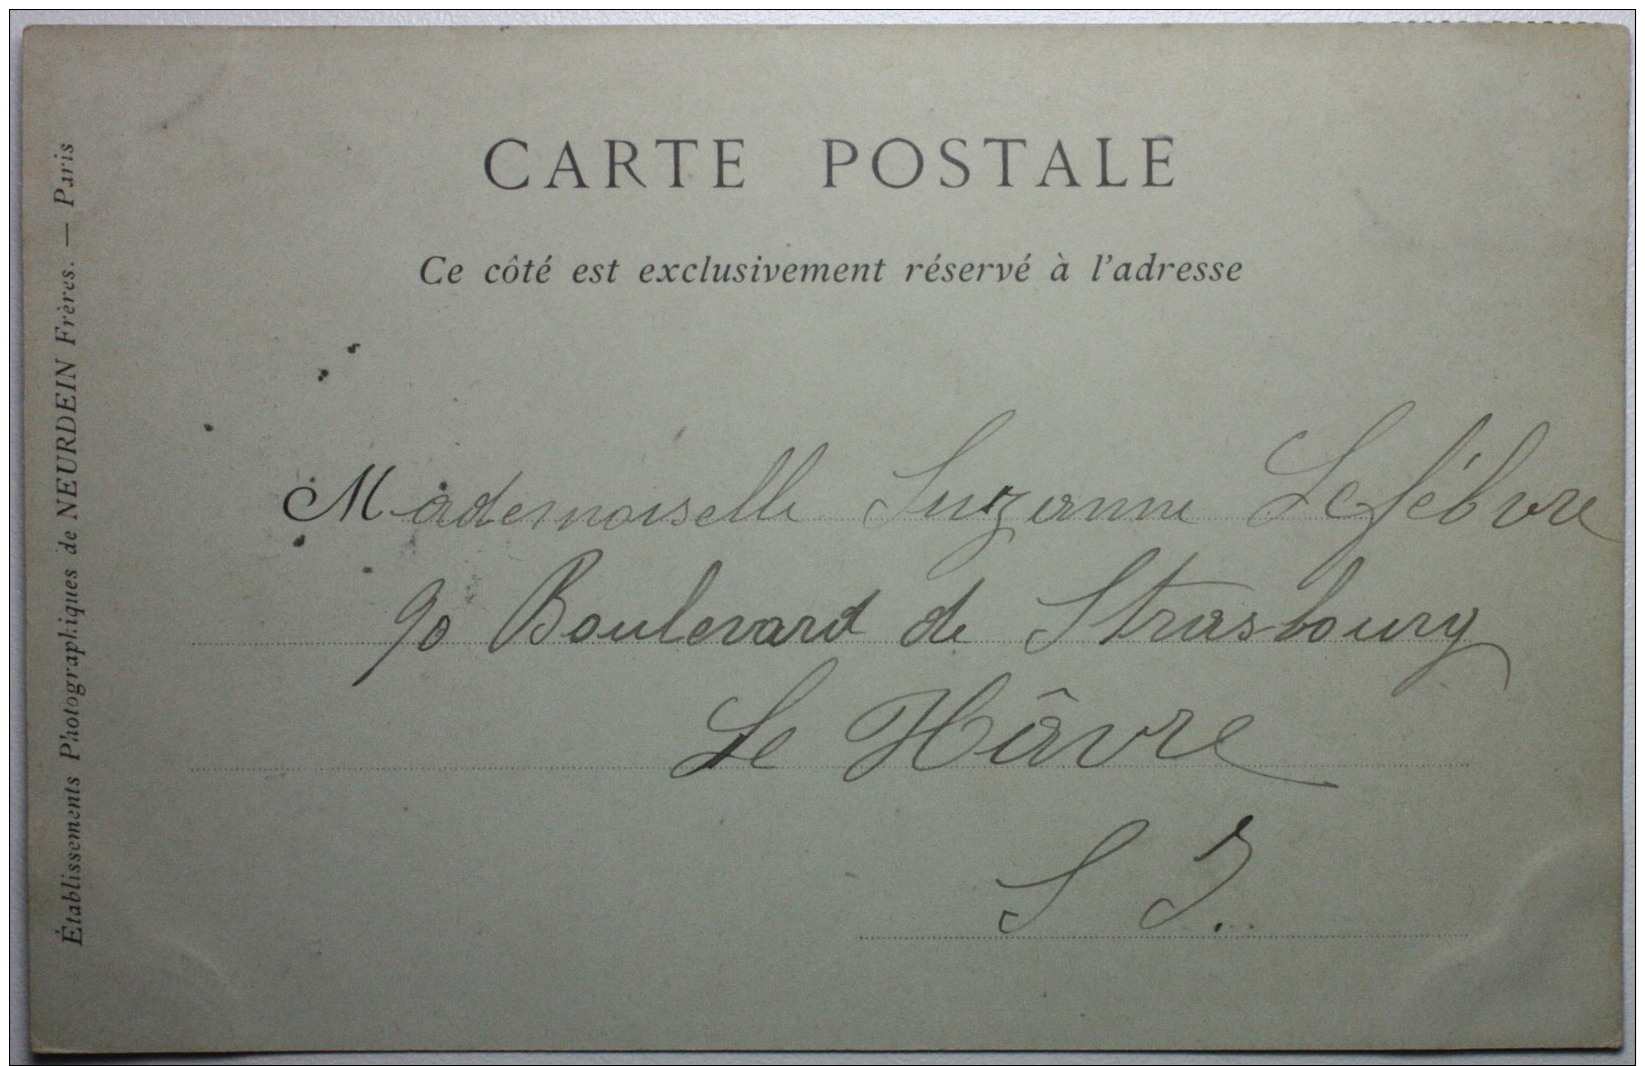 CARTE POSTALE
Ce côté est exclusivement réservé à l'adresse
Mademoiselle Suzanne Lefébvre
90 Boulevard de Strasbourg
Le Hâvre
S I.
Établissements Photographiques de NEURDEIN Frères. — Paris